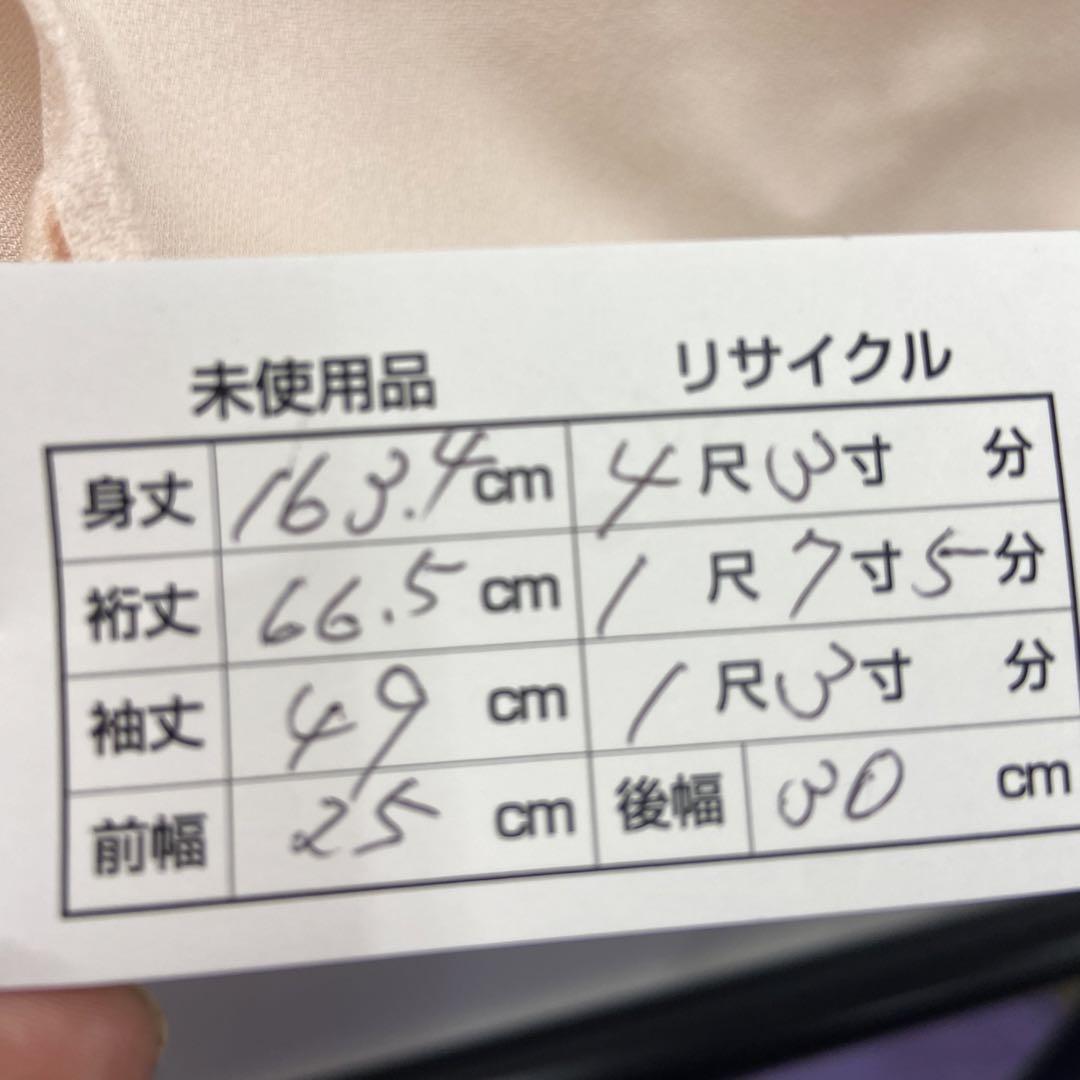 未使用品 リサイクル
身丈 163.4cm 4尺3寸 分
裄丈 66.5cm 1尺7寸5分
袖丈 49cm 1尺3寸 分
前幅 25cm 後幅 30cm